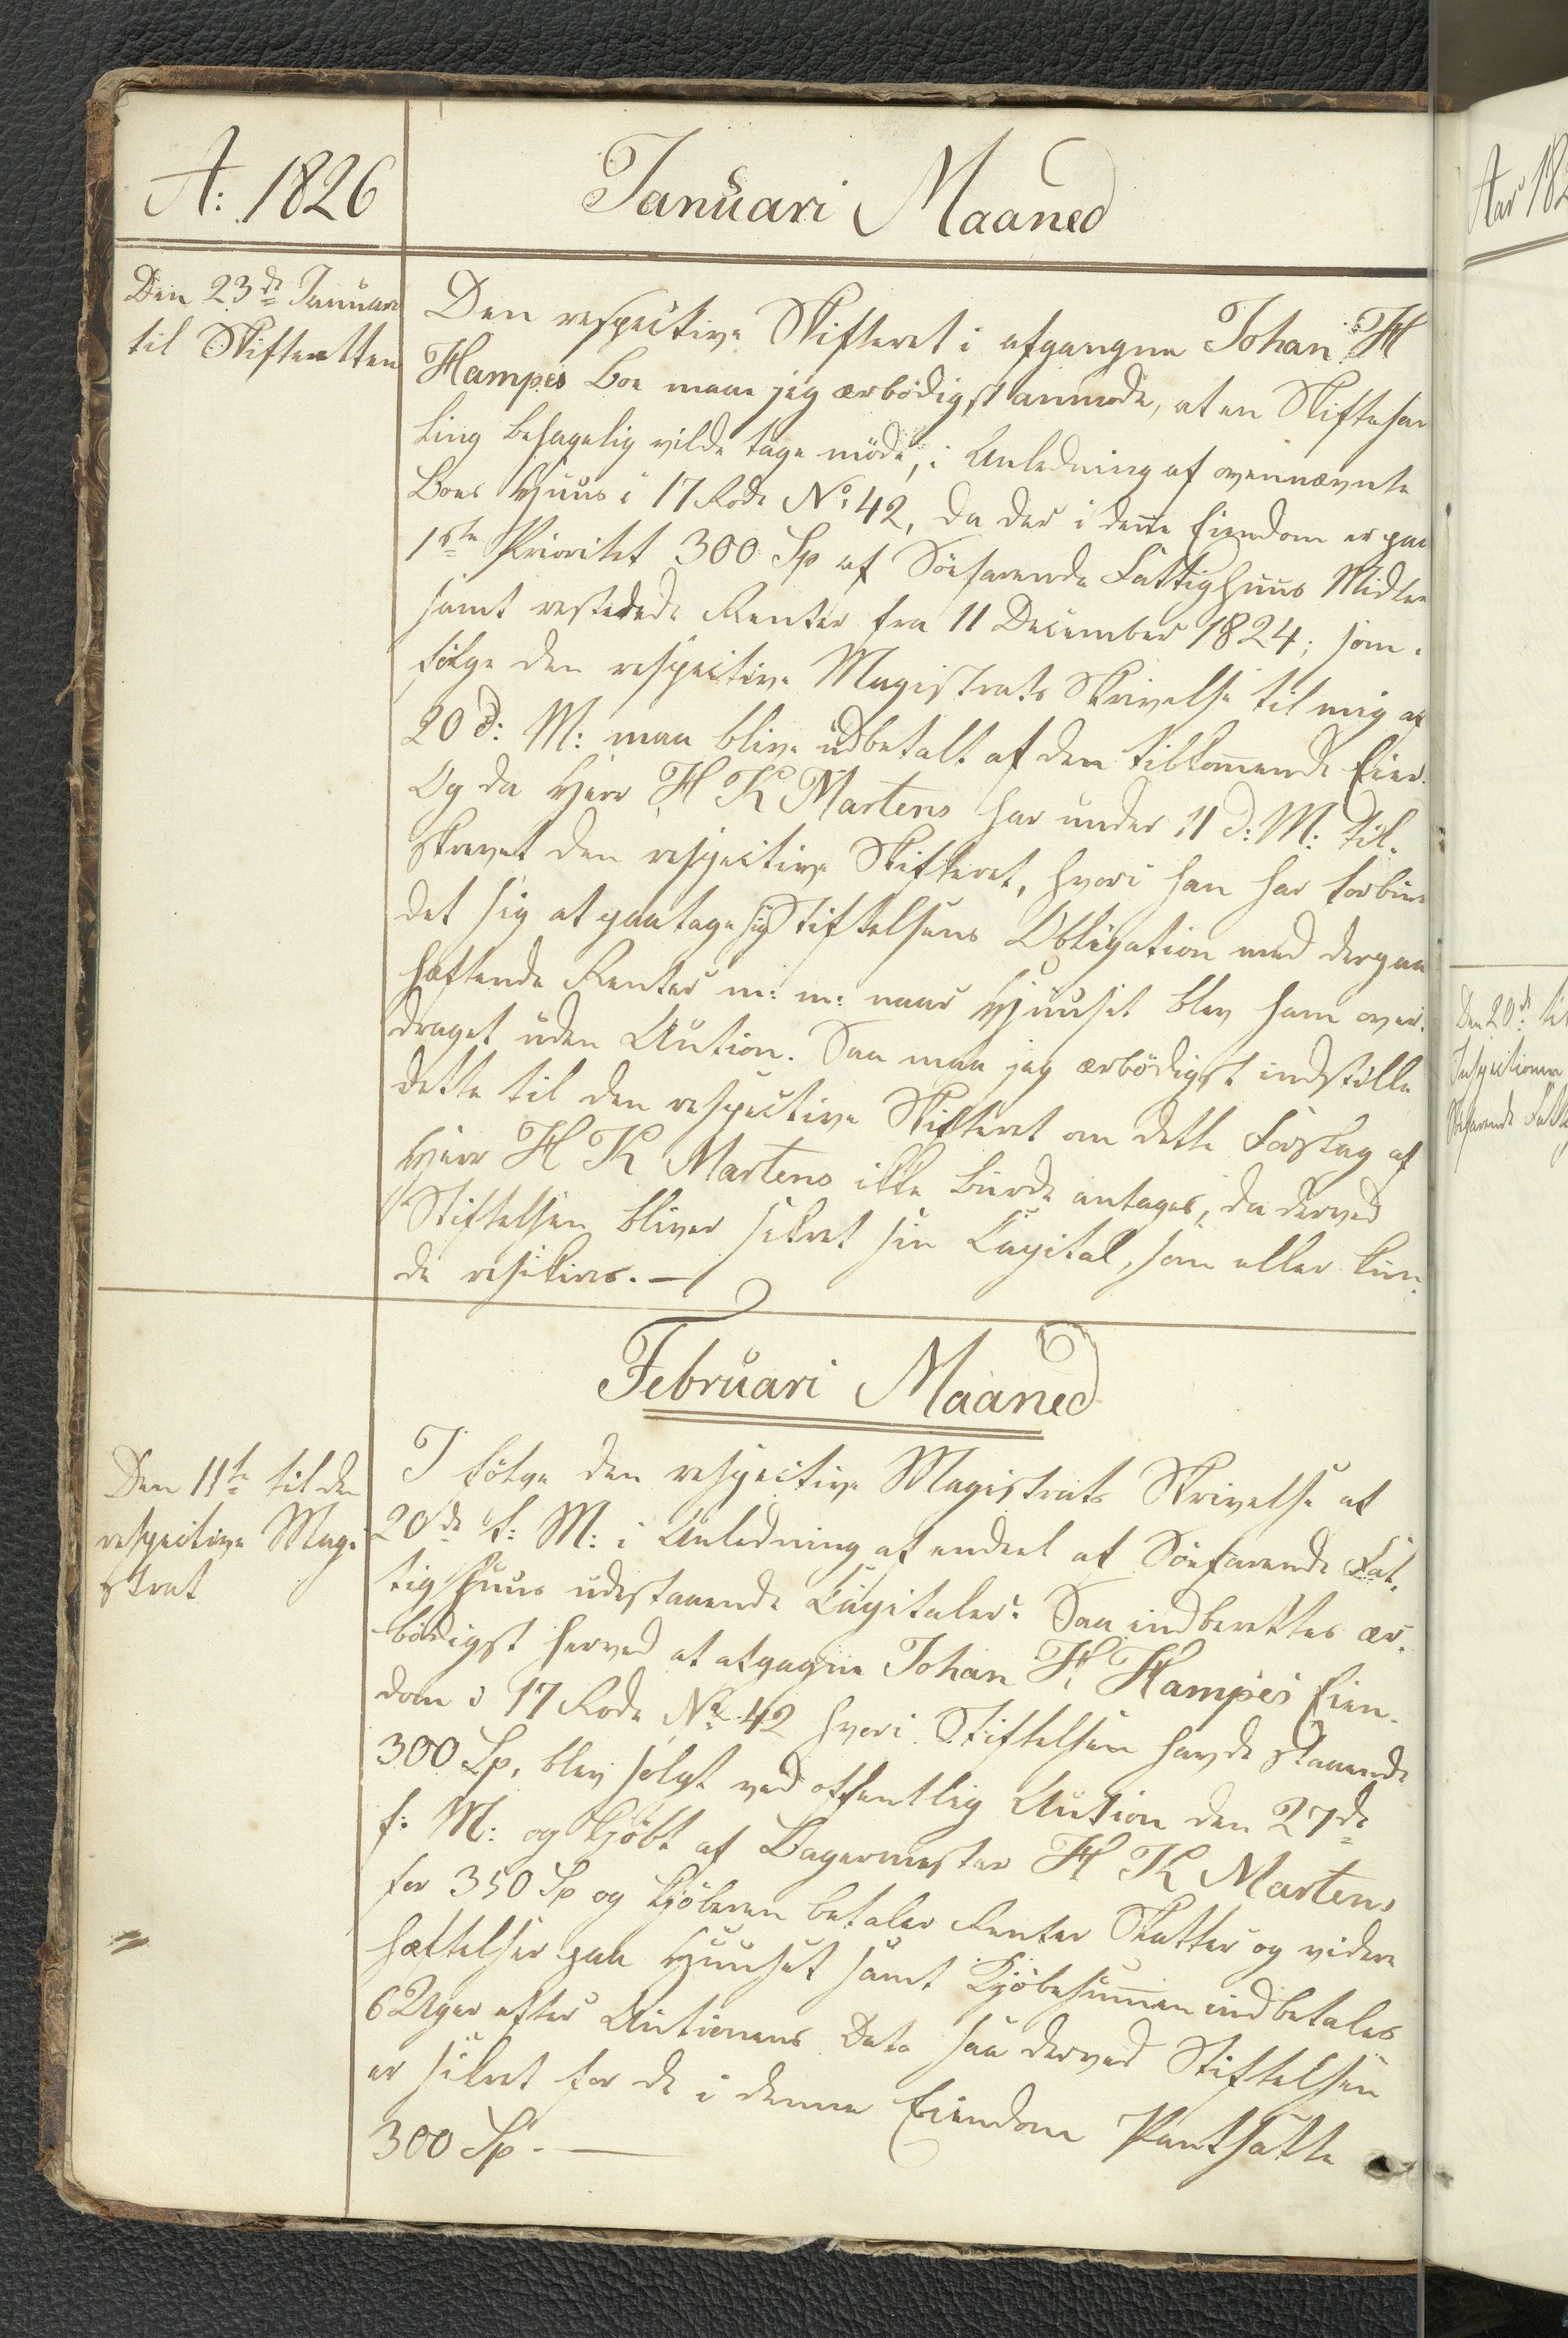 A: 1826
Januari Maaned
Den 23de Januari
til Skifteretten
Den respective Skifteret i afgangne Johan H
Hampes Boe maae jeg ærbödigst anmode, at en Skiftesam
ling behagelig vilde tage möde, i Anledning af ovennævnte
Boes Huus i 17 Rode No 42, da der i denne Eiendom er paa
1ste Prioritet 300 Sp af Söefarende Fattighuus Midler
samt resterede Renter fra 11 December 1824; som i
fölge den respective Magistrats Skrivelse til mig af
20 d: M: maa blive udbetalt af den tilkommende Eier.
Og da Herr H K Martens har under 11 d: M: til-
skrevet den respective Skifteret, hvori han har forbun
det sig at paatage sig Stiftelsens Obligation med derpaa
hæftende Renter m: m: naar Huuset blev ham over-
draget uden Auction. Saa maa jeg ærbödigst indstille
dette til den respective Skifteret om dette Forslag af
Herr H K Martens ikke burde antages, da derved
Stiftelsen bliver sikret sin Capital, som eller kun-
de resikeres. —
Februari Maaned
Den 11te til den
respective Magi
strat
I fölge den respective Magistrats Skrivelse af
20de f: M: i Anledning af endeel af Söefarende Fat-
tighuus udestaaende Capitaler: Saa indberettes ær-
bödigst herved at afgagne Johan H Hampes Eien-
dom i 17 Rode No 42 hvori Stiftelsen havde staaende
300 Sp, blev solgt ved offentlig Auction den 27de
f: M: og kjöbt af Bagermester H K Martens
for 350 Sp og Kjöberen betaler Renter Skatter og videre
hæftelser paa Huuset samt Kjöbesummen indbetales
6 Uger efter Auctionens Dato saa derved Stiftelsen
er sikret for de i denne Eiendom Pantsatte
300 Sp. —
Aar 182
Den 20de til
Inspectionen
Söefarende Fatti